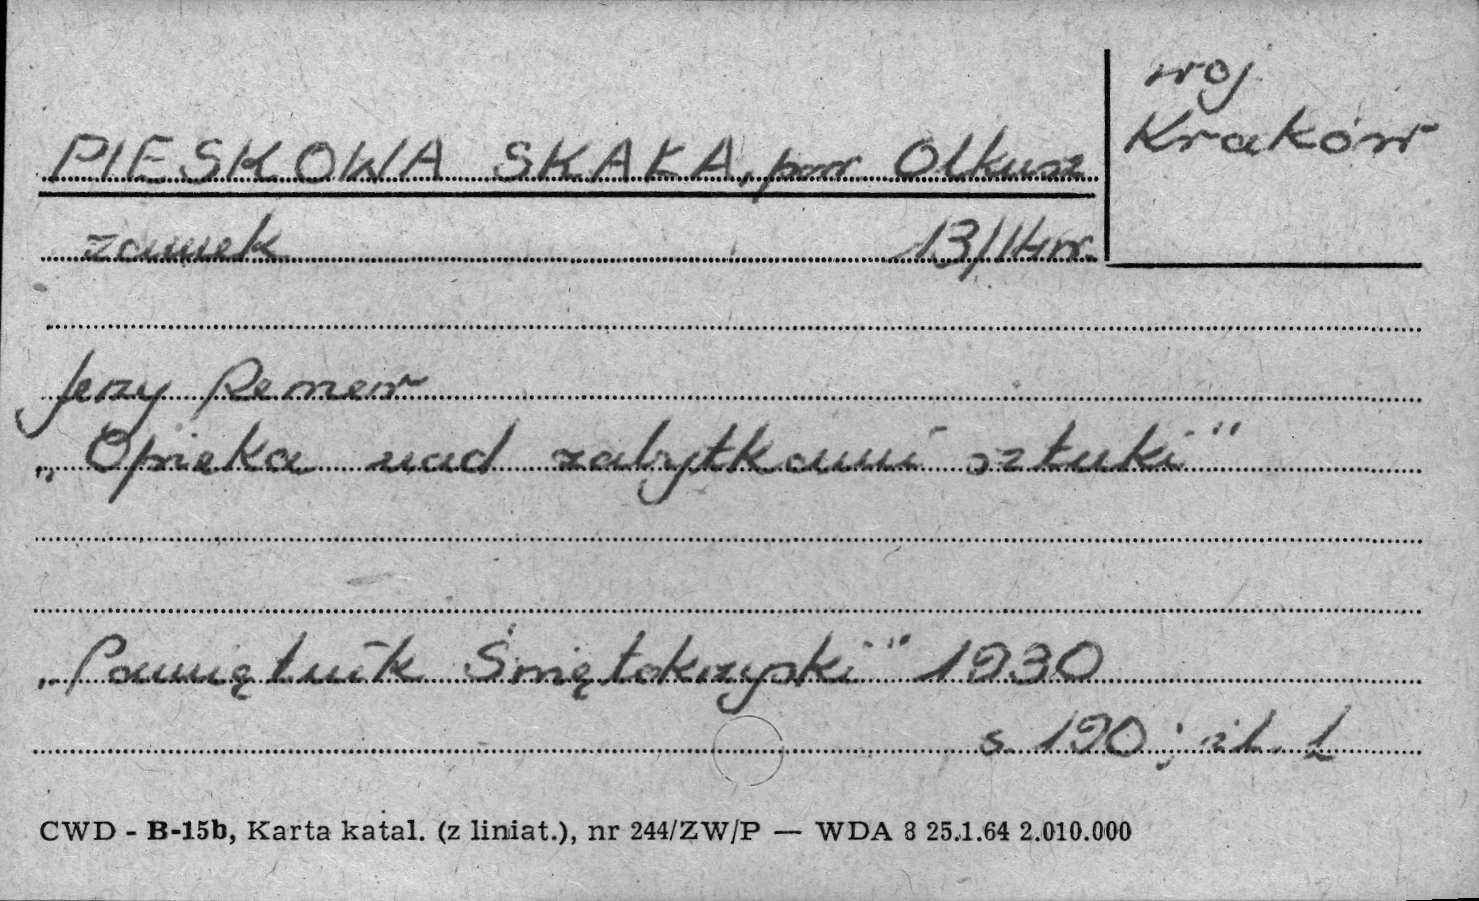 woj.
Kraków
PIESKOWA SKAŁA, pow. Olkusz
zamek 13/14 w.
Jerzy Remer
„Opieka nad zabytkami sztuki"
„Pamiętnik Świętokrzyski" 1930
s. 190; il. 1
CWD - B-15b, Karta katal. (z liniat.), nr 244/ZW/P — WDA 8 25.1.64 2.010.000